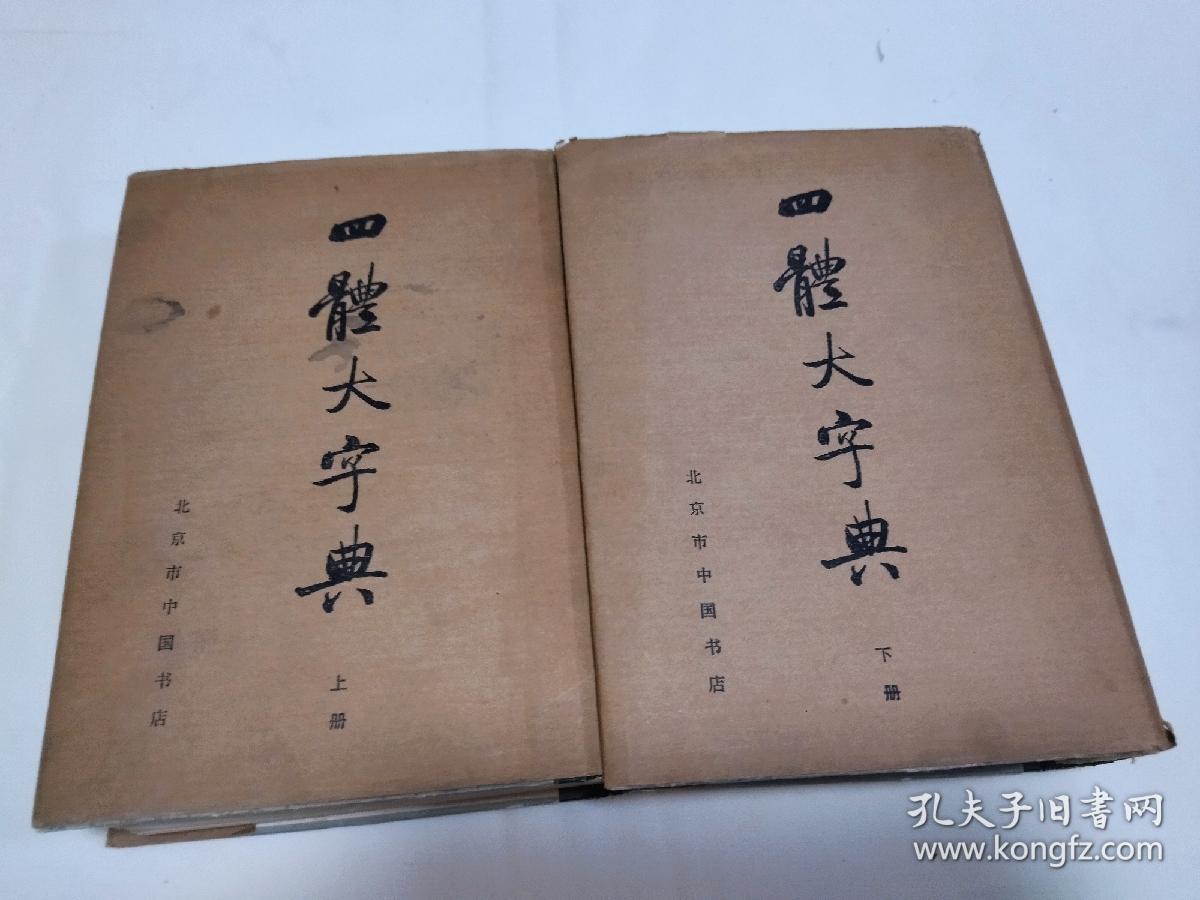 四體大字典
上册
北京市中国书店
四體大字典
下册
北京市中国书店
孔夫子旧书网
www.kongfz.com